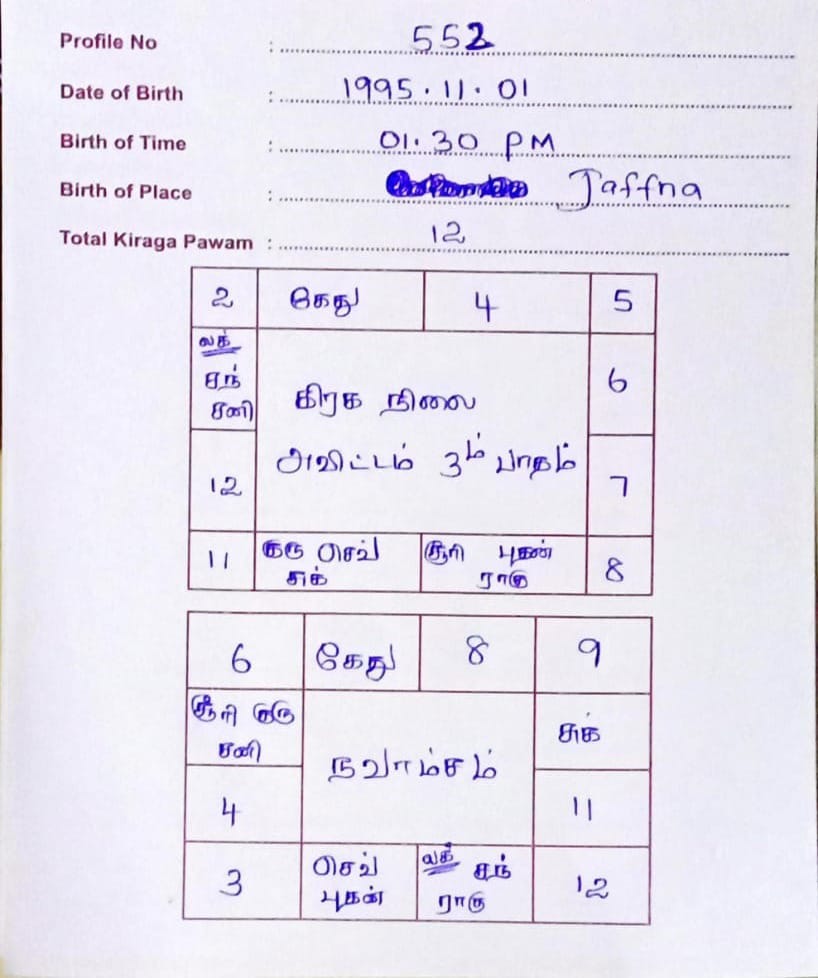 Profile No : 552
Date of Birth : 1995.11.01
Birth of Time : 01.30 PM
Birth of Place : Jaffna
Total Kiraga Pawam : 12
2 கேது 4 5
லக்
சந்
சனி
6
கிரக நிலை
அவிட்டம் 3ம் பாதம்
12 7
11 குரு செவ் சூரி புதன் 8
சுக் ராகு
6 கேது 8 9
சூரி குரு
சனி
சுக்
நவாம்சம்
4 11
3 செவ் லக் சந் 12
புதன் ராகு